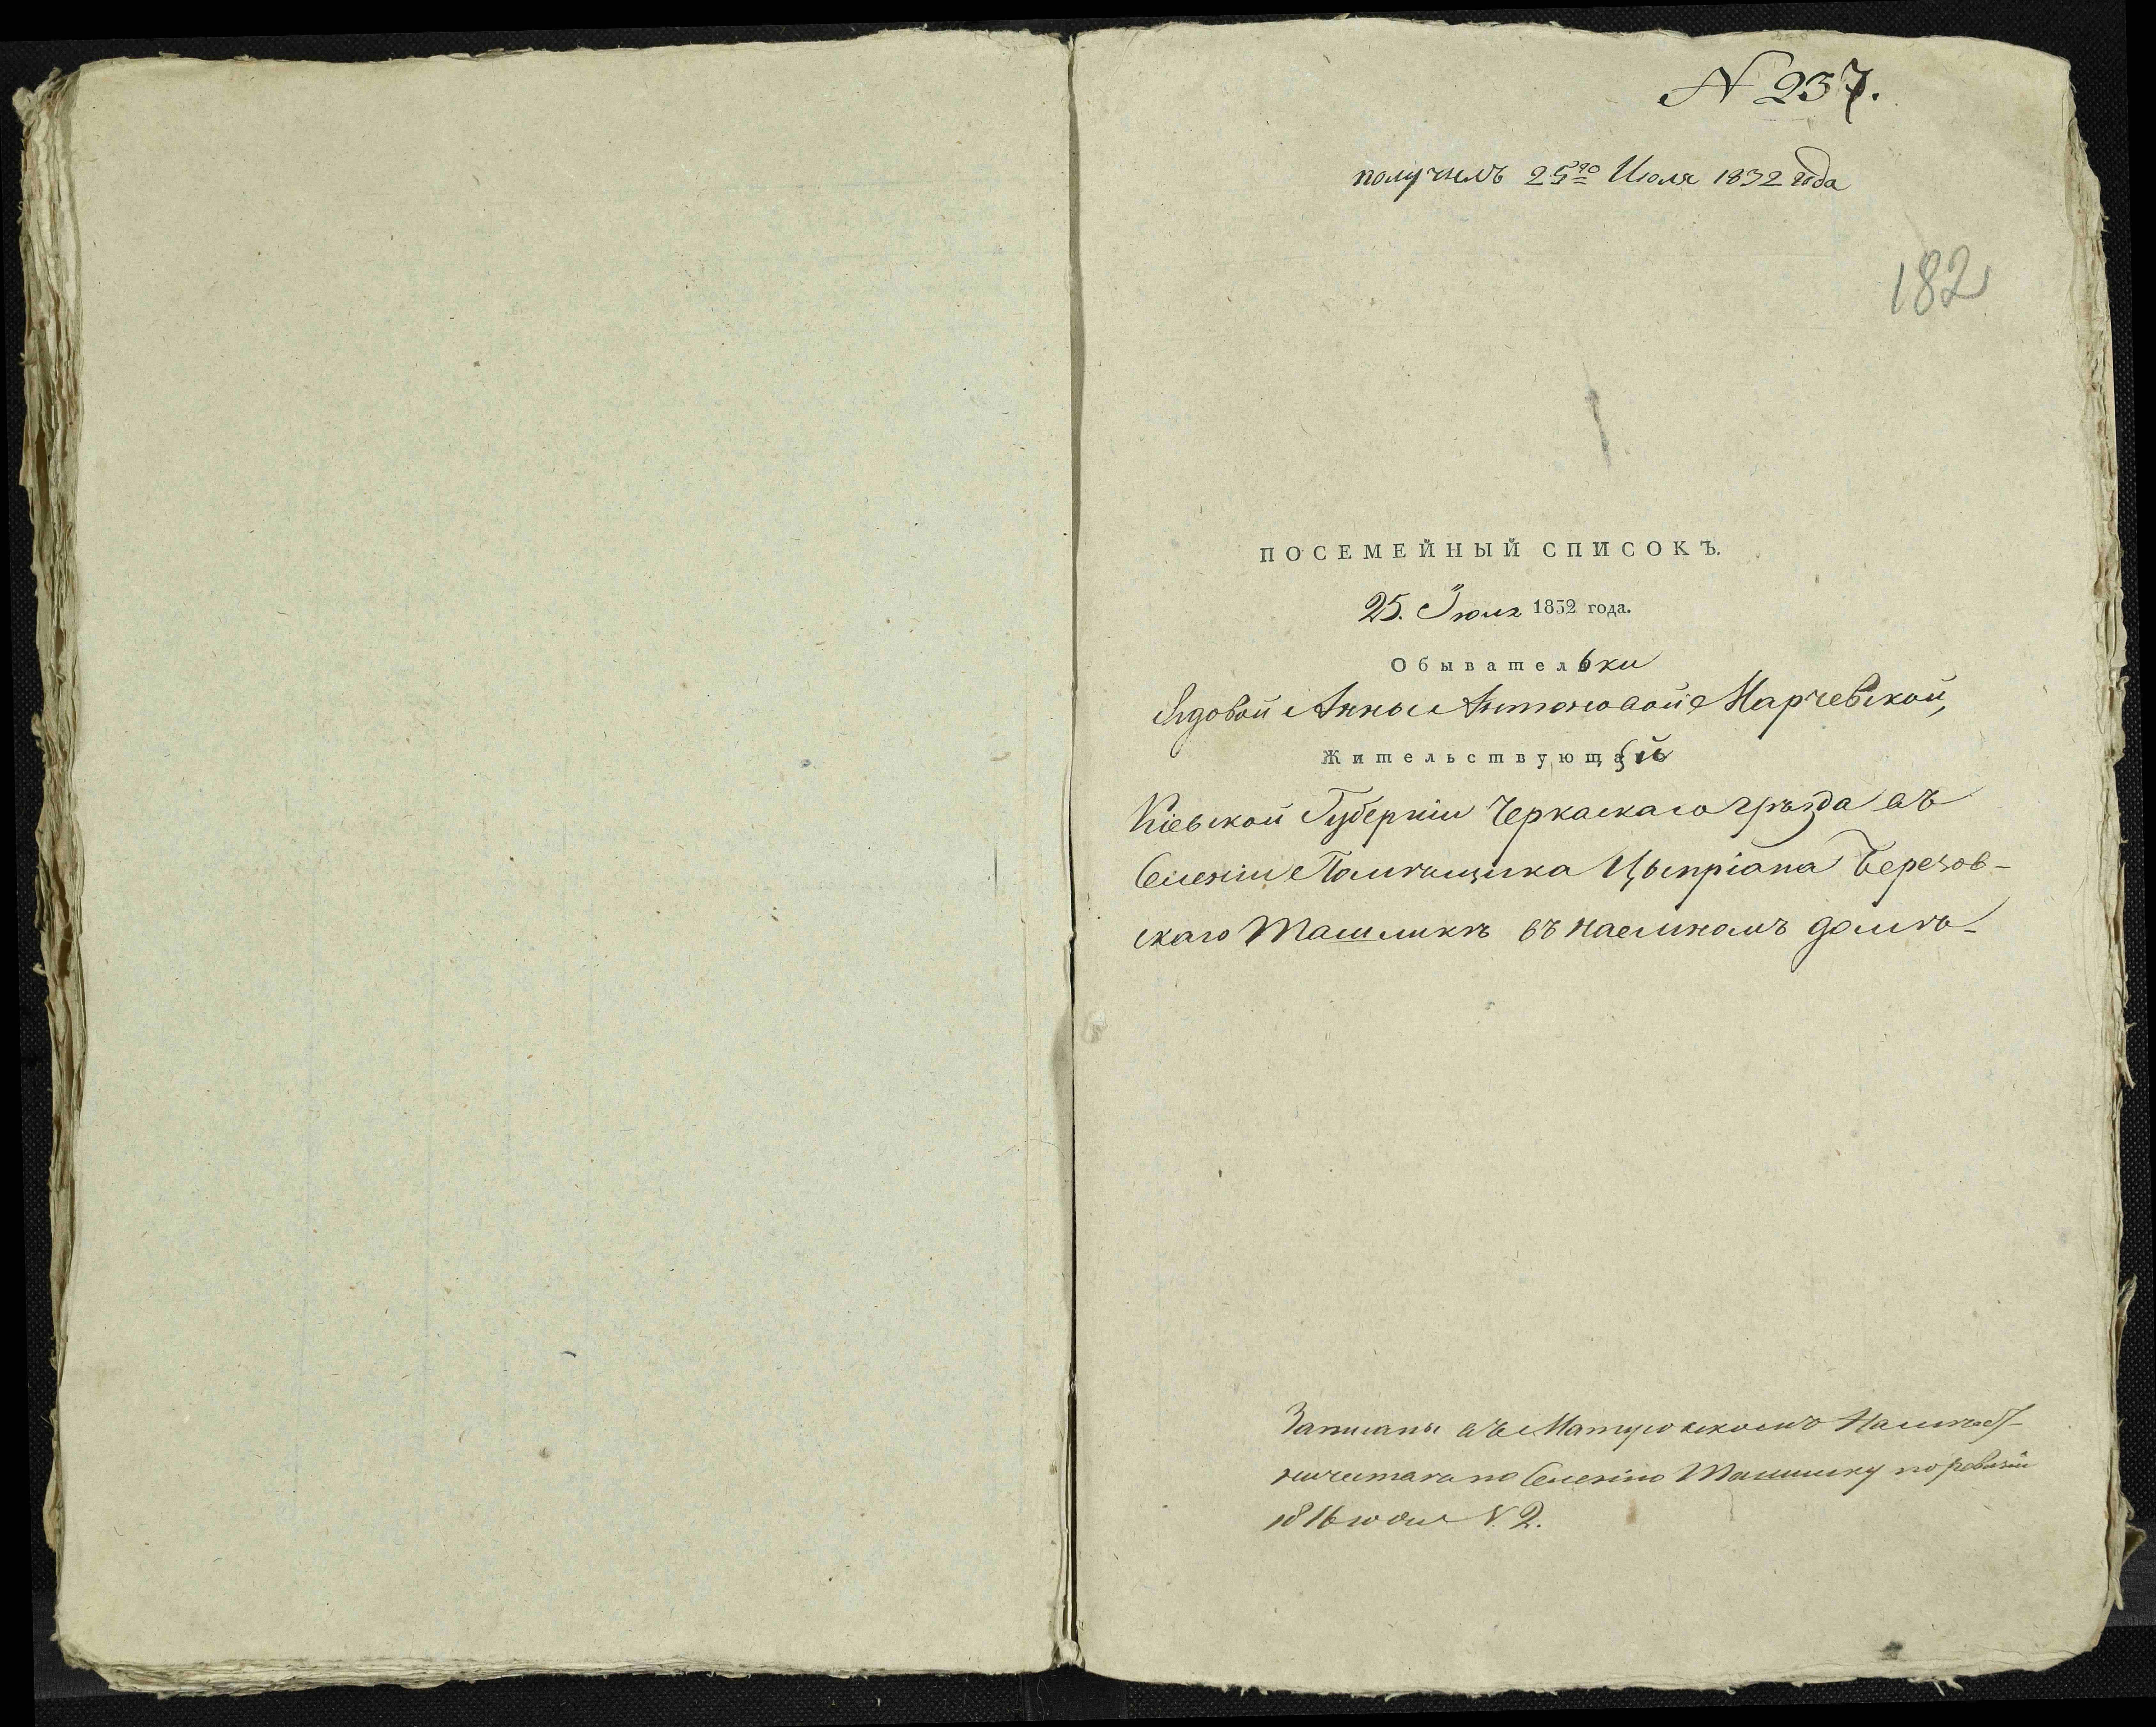 N 237.
получилъ 25го Июля 1832 года
182
ПОСЕМЕЙНЫЙ СПИСОКЪ.
25. Июля 1832 года.
Обывательки
Вдовой Анны Антоновой Марчевской,
Жительствующей
Кіевской Губерніи Черкаскаго уѣзда въ
Селеніи Помѣщика Цыпріана Березов-
скаго Ташликѣ въ наемномъ домѣ
Записаны въ Матусовскомъ Намѣст-
ничествѣ по Селенію Ташлыку по ревизіи
1816 года N. 2.